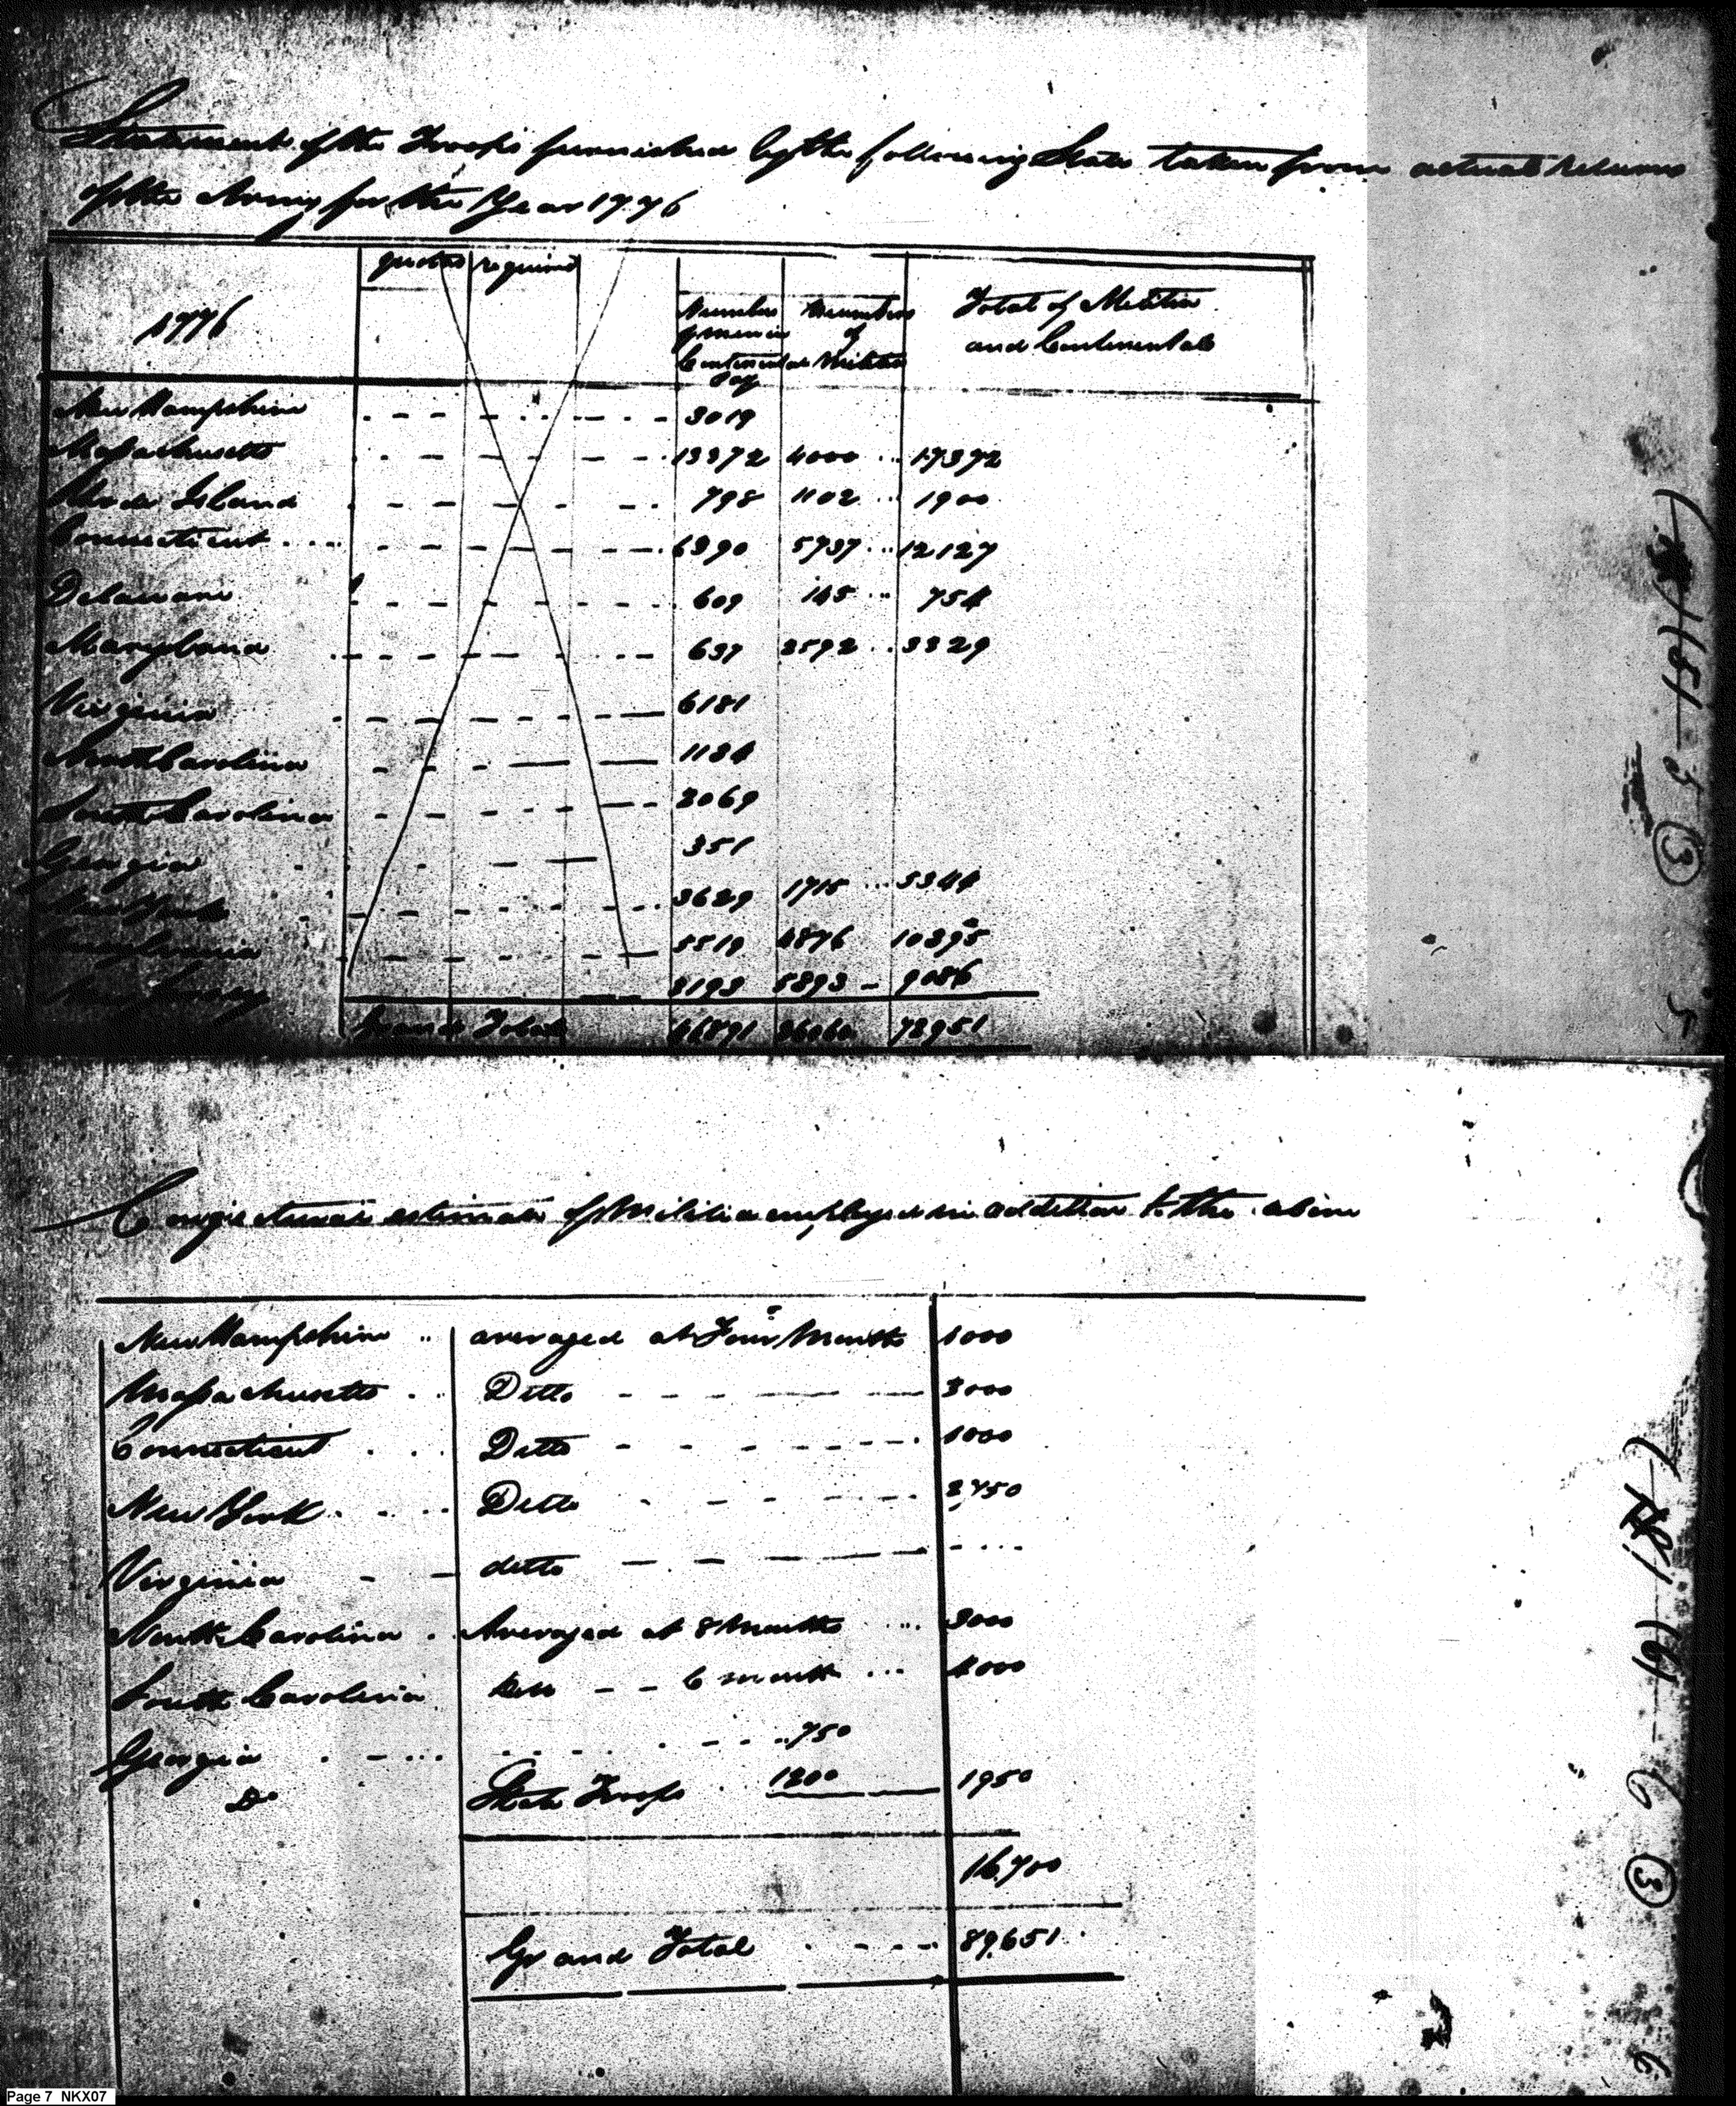 Statement of the Troops furnished by the following State taken from actual Returns
of the Army for the Year 1776
quotas required
1776
Number of men in Continental Pay
Numbers of Militia
Total of Militia and Continentals
New Hampshire 3019
Massachusetts 13372 4000 17372
Rhode Island 798 1102 1900
Connecticut 6390 5737 12127
Delaware 609 145 754
Maryland 637 2592 3329
Virginia 6181
North Carolina 1134
South Carolina 2069
Georgia 351
New York 3629 1715 5344
Pennsylvania 5519 4876 10395
New Jersey 3193 5893 9086
Grand Total 46891 26060 72951
Conjectural estimate of Militia employed in addition to the above
New Hampshire averaged at Four Months 1000
Massachusetts Ditto 3000
Connecticut Ditto 1000
New York Ditto 2,750
Virginia ditto
North Carolina Averaged at 8 Months 3000
South Carolina Ditto 6 months 4000
Georgia 750
Do State Troops 1200 1950
16,700
Grand Total 89,651
5
(3)
5
6
(3)
6
Page 7 NKX07